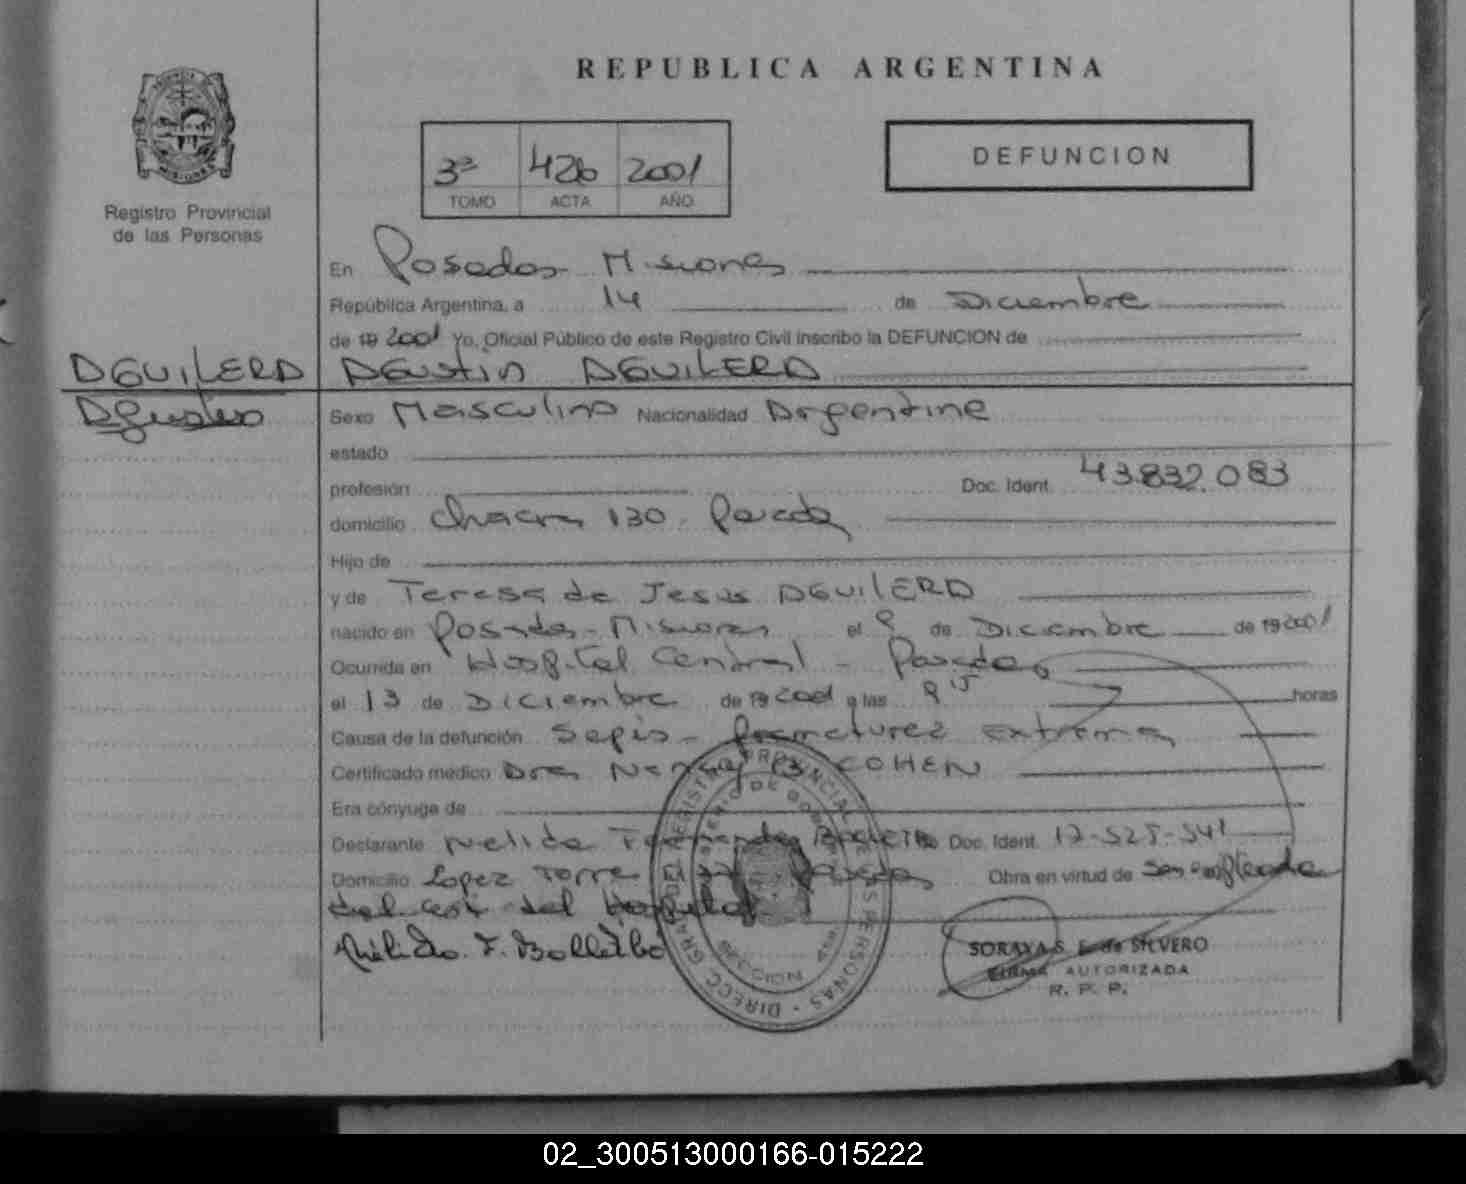 REPUBLICA ARGENTINA
3ª 426 2001
TOMO ACTA AÑO
DEFUNCION
Registro Provincial
de las Personas
En Posadas Misiones
República Argentina, a 14 de Diciembre
de 19 2001 Yo, Oficial Público de este Registro Civil inscribo la DEFUNCION de
AGUILERA AGUSTIN AGUILERA
Agustin
Sexo Masculino Nacionalidad Argentina
estado
profesión Doc. Ident. 43.832.083
domicilio Chacra 130 Posadas
Hijo de
y de Teresa de Jesus AGUILERA
nacido en Posadas - Misiones el 9 de Diciembre de 19 2001
Ocurrida en Hospital Central - Posadas
el 13 de Diciembre de 19 2001 a las 9 15 horas
Causa de la defunción Sepis - prematurez extrema
Certificado médico Dra COHEN
Era cónyuge de
Declarante Nelida Doc. Ident. 17-525-541
Domicilio Lopez Torre Posadas Obra en virtud de ser empleada
del Hospital
SORAYA S. E. de SILVERO
FIRMA AUTORIZADA
R. P. P.
02_300513000166-015222